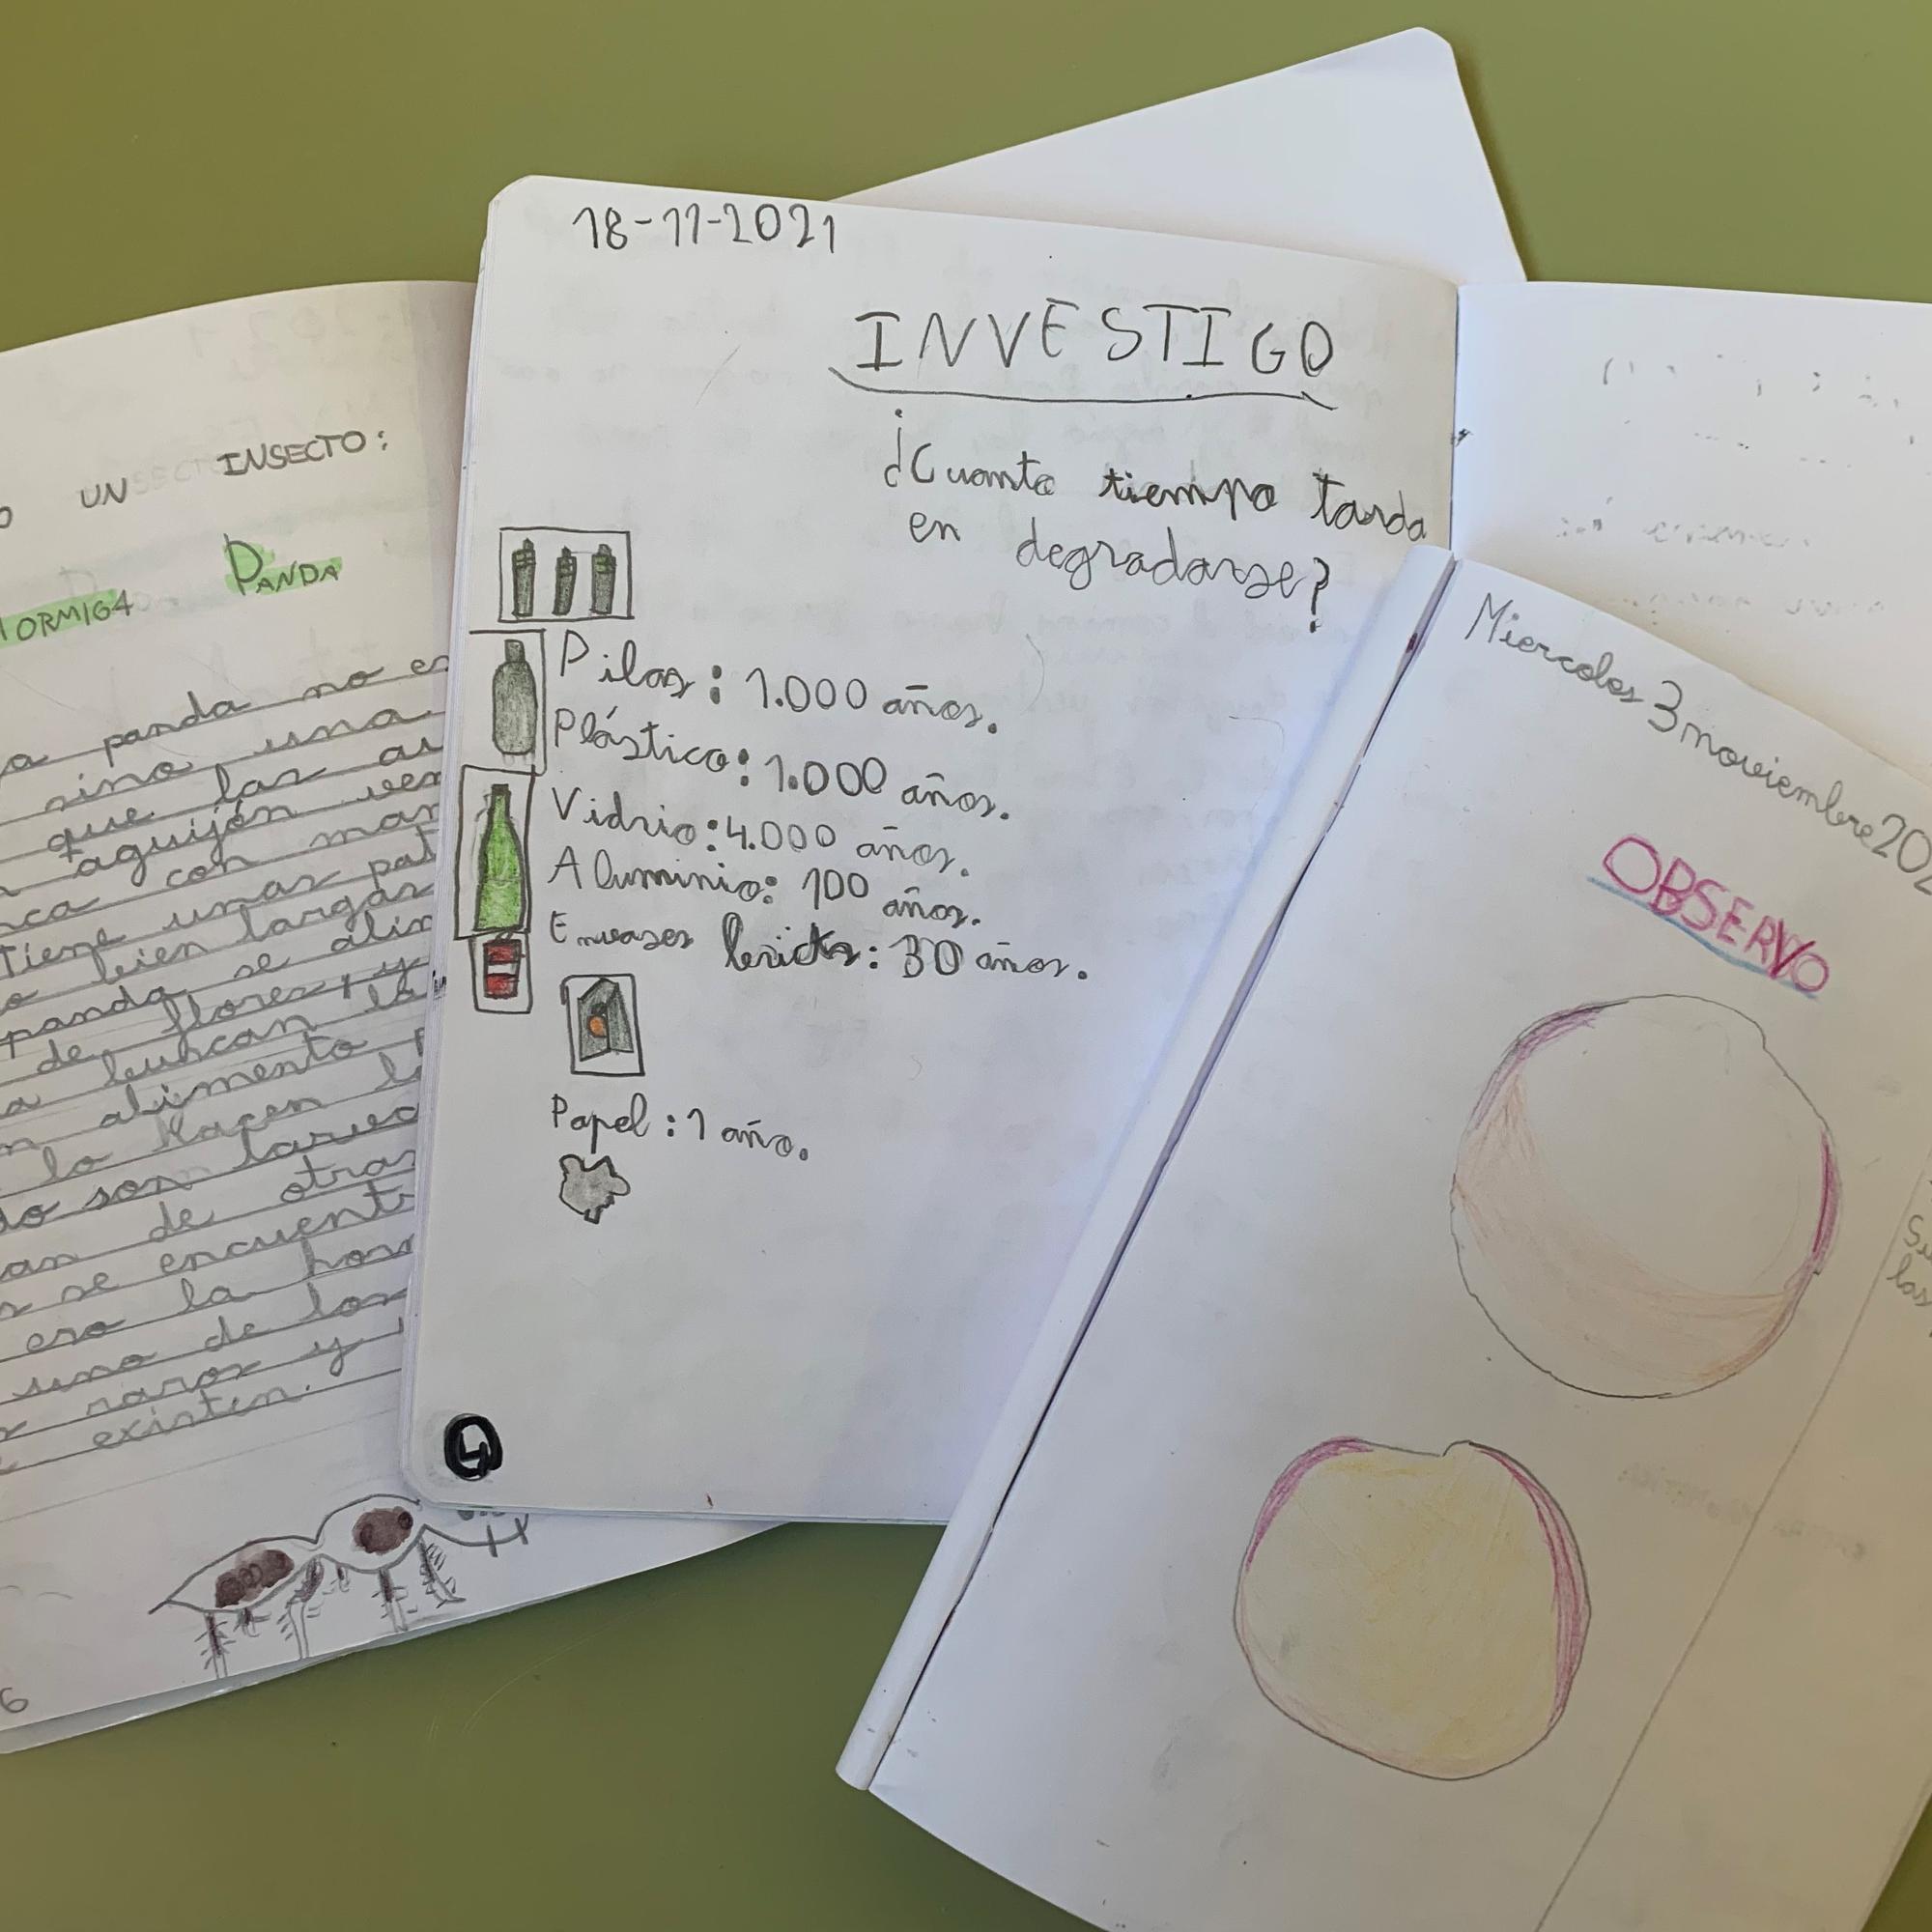 UN INSECTO:
ORMIGA PANDA
a panda no es
sino una
que las au
aguijón ven
ca con man
Tiene unas pat
bien largas
panda se alim
de flores, y
buscan la
alimento
lo hacen l
do son larva
an de otras
se encuent
ero la hor
uno de los
raros y
existen.
6
18-11-2021
INVESTIGO
¿Cuanto tiempo tarda
en degradarse?
Pilas: 1.000 años.
Plástico: 1.000 años.
Vidrio: 4.000 años.
Aluminio: 100 años.
Envases bricks: 30 años.
Papel: 1 año.
4
Miercoles 3 noviembre 202
OBSERVO
Su
las